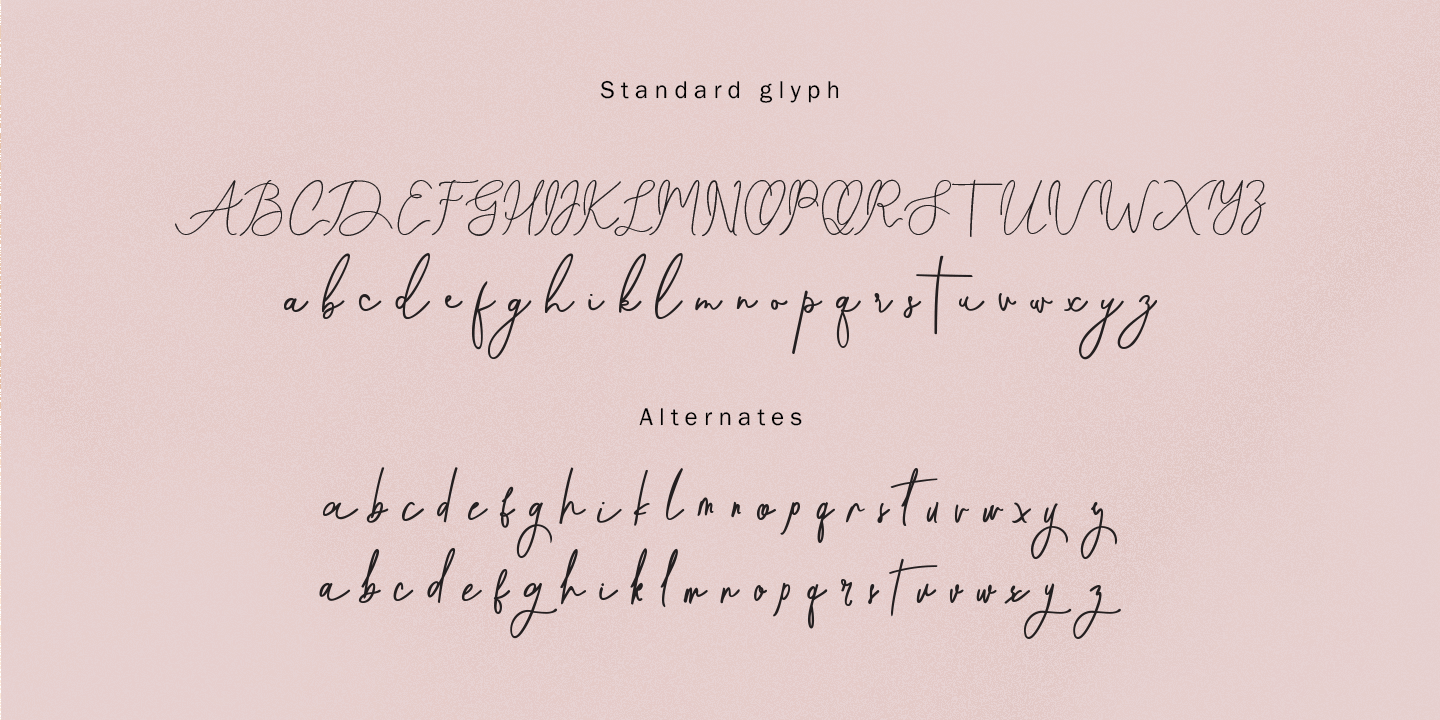 Standard glyph
ABCDEFGHIJKLMNOPQRSTUVWXYZ
a b c d e f g h i k l m n o p q r s t u v w x y z
Alternates
a b c d e f g h i k l m n o p q r s t u v w x y z
a b c d e f g h i k l m n o p q r s t u v w x y z